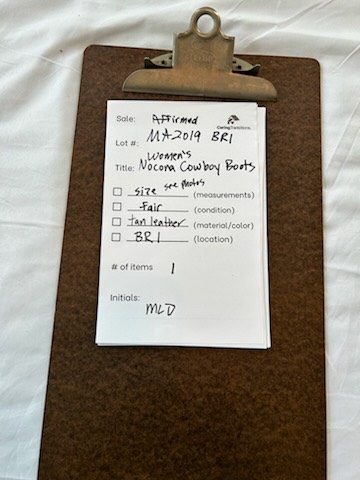 Sale: Affirmed
CaringTransitions
Lot #: MA2019 BR1
Women's
Title: Nocona Cowboy Boots
size see photos (measurements)
Fair (condition)
tan leather (material/color)
BR1 (location)
# of items 1
Initials:
MLD